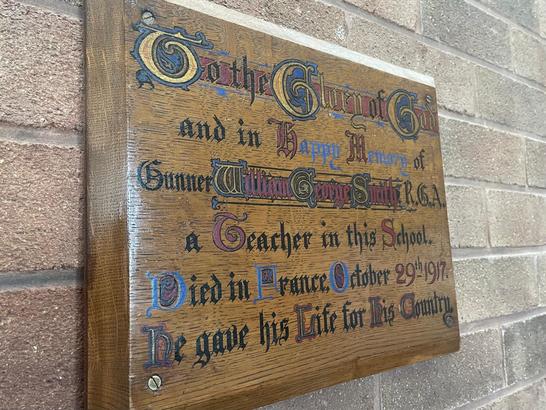 To the Glory of God
and in Happy Memory of
Gunner William George Smith, R.G.A.
a Teacher in this School.
Died in France, October 29th 1917.
He gave his Life for His Country.